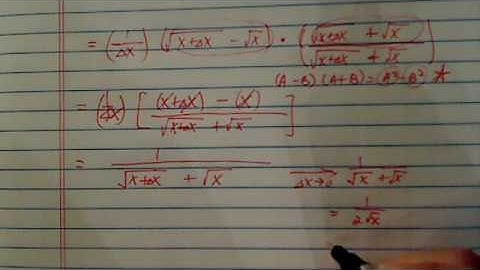 = (1/Δx) (√(x+Δx) - √x) · (√(x+Δx) + √x / √(x+Δx) + √x)
(A-B)(A+B) = A²-B² ★
= (1/Δx) [(x+Δx) - (x) / √(x+Δx) + √x]
= 1 / √(x+Δx) + √x   Δx→0   1 / √x + √x
= 1 / 2√x